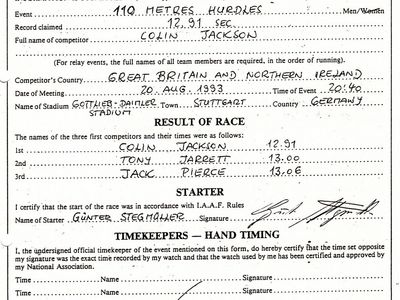 Event 110 METRES HURDLES Men/Women
Record claimed 12.91 SEC.
Full name of competitor COLIN JACKSON
(For relay events, the full names of all team members are required, in the order of running).
Competitor's Country GREAT BRITAIN AND NORTHERN IRELAND
Date of Meeting 20 AUG. 1993 Time of Event 20:40
Name of Stadium GOTTLIEB-DAIMLER STADIUM Town STUTTGART Country GERMANY
RESULT OF RACE
The names of the three first competitors and their times were as follows:
1st COLIN JACKSON 12.91
2nd TONY JARRETT 13.00
3rd JACK PIERCE 13.06
STARTER
I certify that the start of the race was in accordance with I.A.A.F. Rules
Name of Starter GÜNTER STEGMÜLLER Signature
TIMEKEEPERS — HAND TIMING
I, the undersigned official timekeeper of the event mentioned on this form, do hereby certify that the time set opposite
my signature was the exact time recorded by my watch and that the watch used by me has been certified and approved by
my National Association.
Time Name Signature
Time Name Signature